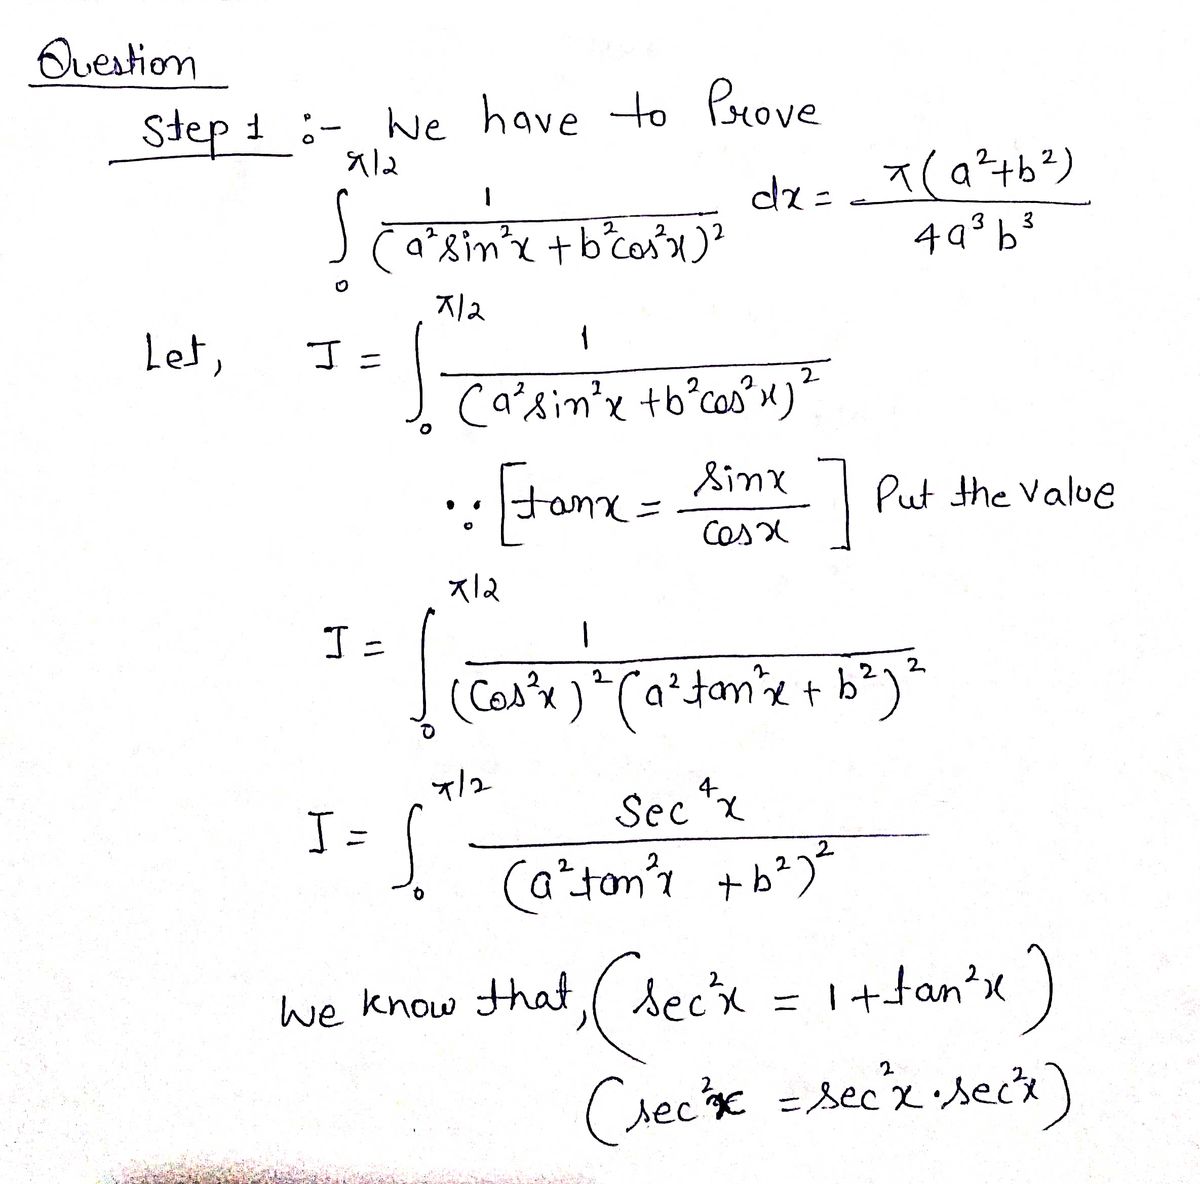 Question
Step 1 :- We have to Prove
∫₀^{π/2} 1/(a²sin²x + b²cos²x)² dx = π(a²+b²)/4a³b³
Let, I = ∫₀^{π/2} 1/(a²sin²x + b²cos²x)²
∵ [tanx = sinx/cosx] Put the value
I = ∫₀^{π/2} 1/(Cos²x)²(a²tan²x + b²)²
I = ∫₀^{π/2} Sec⁴x/(a²tan²x + b²)²
We know that, (sec²x = 1+tan²x)
(sec²x = sec²x·sec²x)